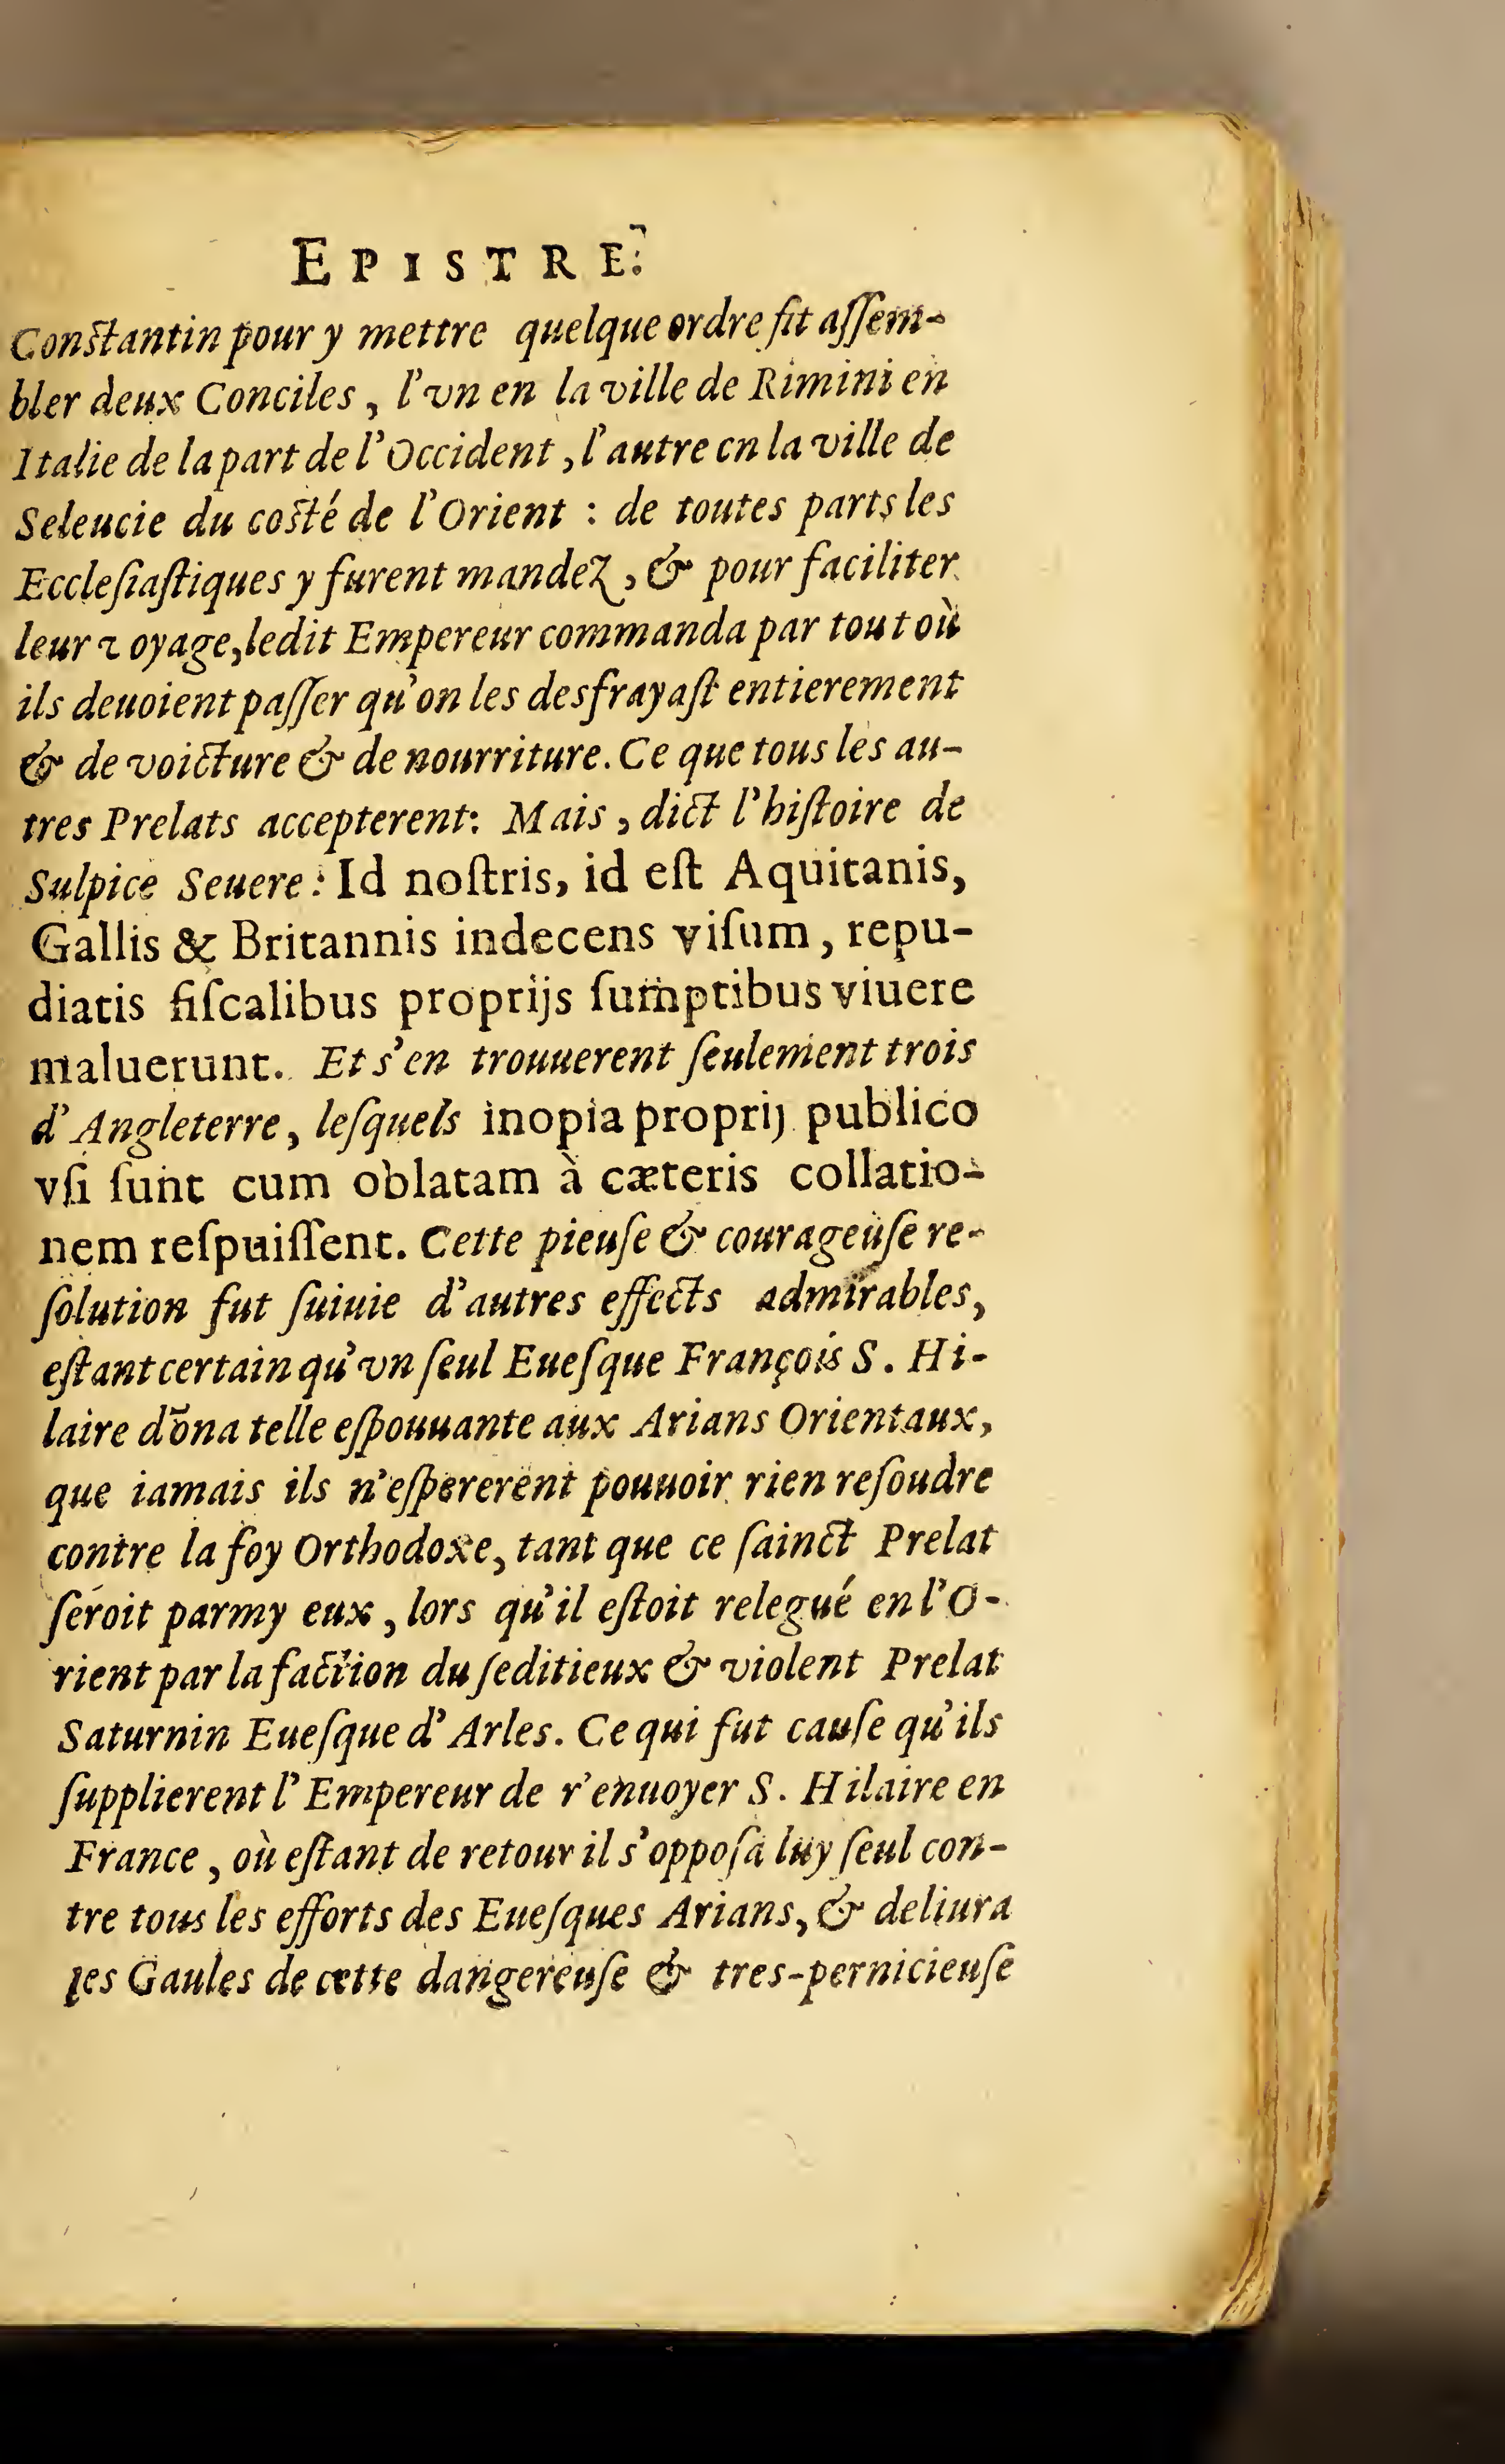 EPISTRE.
Constantin pour y mettre quelque ordre fit aſſem-
bler deux Conciles, l'vn en la ville de Rimini en
Italie de la part de l'Occident, l'autre en la ville de
Seleucie du coſté de l'Orient : de toutes parts les
Eccleſiaſtiques y furent mandez, & pour faciliter
leur voyage, ledit Empereur commanda par tout où
ils deuoient paſſer qu'on les desfrayaſt entierement
& de voicture & de nourriture. Ce que tous les au-
tres Prelats accepterent: Mais, dict l'hiſtoire de
Sulpice Seuere: Id noſtris, id eſt Aquitanis,
Gallis & Britannis indecens viſum, repu-
diatis fiſcalibus proprijs ſumptibus viuere
maluerunt. Et s'en trouuerent ſeulement trois
d'Angleterre, leſquels inopia proprij publico
vſi ſunt cum oblatam à cæteris collatio-
nem reſpuiſſent. Cette pieuſe & courageuſe re-
ſolution fut ſuiuie d'autres effects admirables,
eſtant certain qu'vn ſeul Eueſque François S. Hi-
laire dōna telle eſpouuante aux Arians Orientaux,
que iamais ils n'eſpererent pouuoir rien reſoudre
contre la foy Orthodoxe, tant que ce ſainct Prelat
ſeroit parmy eux, lors qu'il eſtoit relegué en l'O-
rient par la faction du ſeditieux & violent Prelat
Saturnin Eueſque d'Arles. Ce qui fut cauſe qu'ils
ſupplierent l'Empereur de r'enuoyer S. Hilaire en
France, où eſtant de retour il s'oppoſa luy ſeul con-
tre tous les efforts des Eueſques Arians, & deliura
les Gaules de cette dangereuſe & tres-pernicieuſe